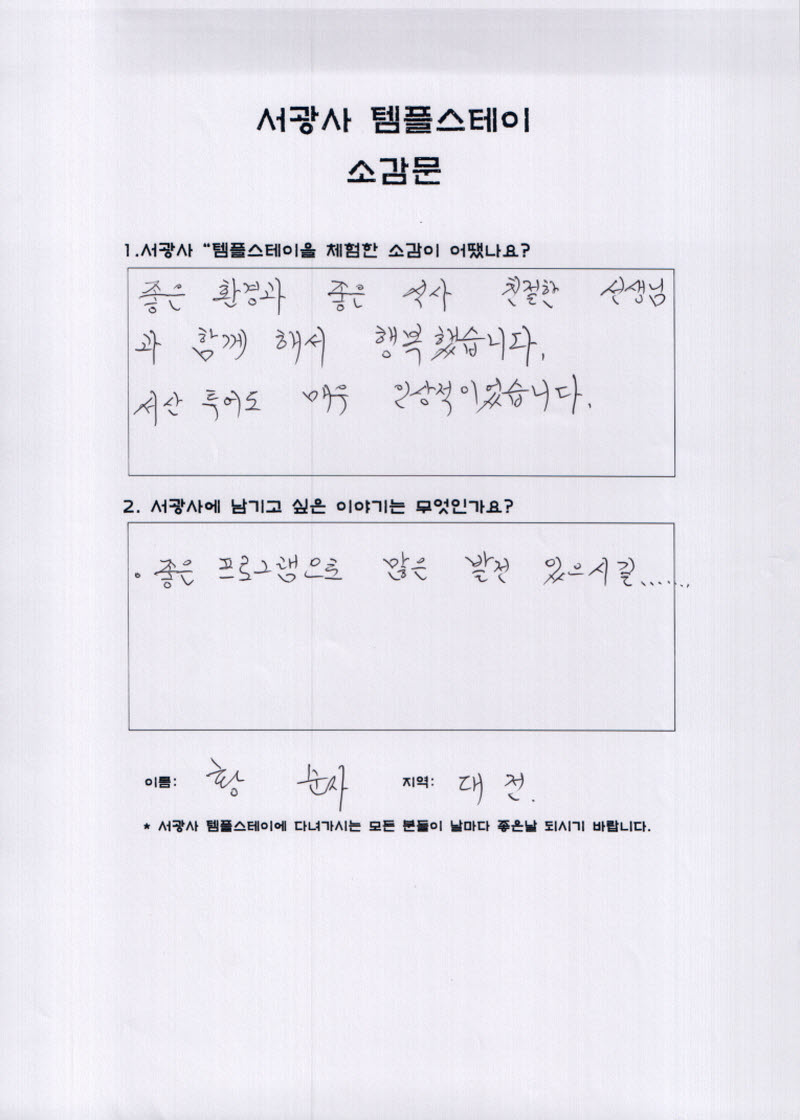 서광사 템플스테이
소감문
1.서광사 “템플스테이을 체험한 소감이 어땠나요?
좋은 환경과 좋은 식사 친절한 선생님
과 함께 해서 행복했습니다.
서산 투어도 매우 인상적이었습니다.
2. 서광사에 남기고 싶은 이야기는 무엇인가요?
• 좋은 프로그램으로 많은 발전 있으시길.......
이름: 황 지역: 대전.
* 서광사 템플스테이에 다녀가시는 모든 분들이 날마다 좋은날 되시기 바랍니다.